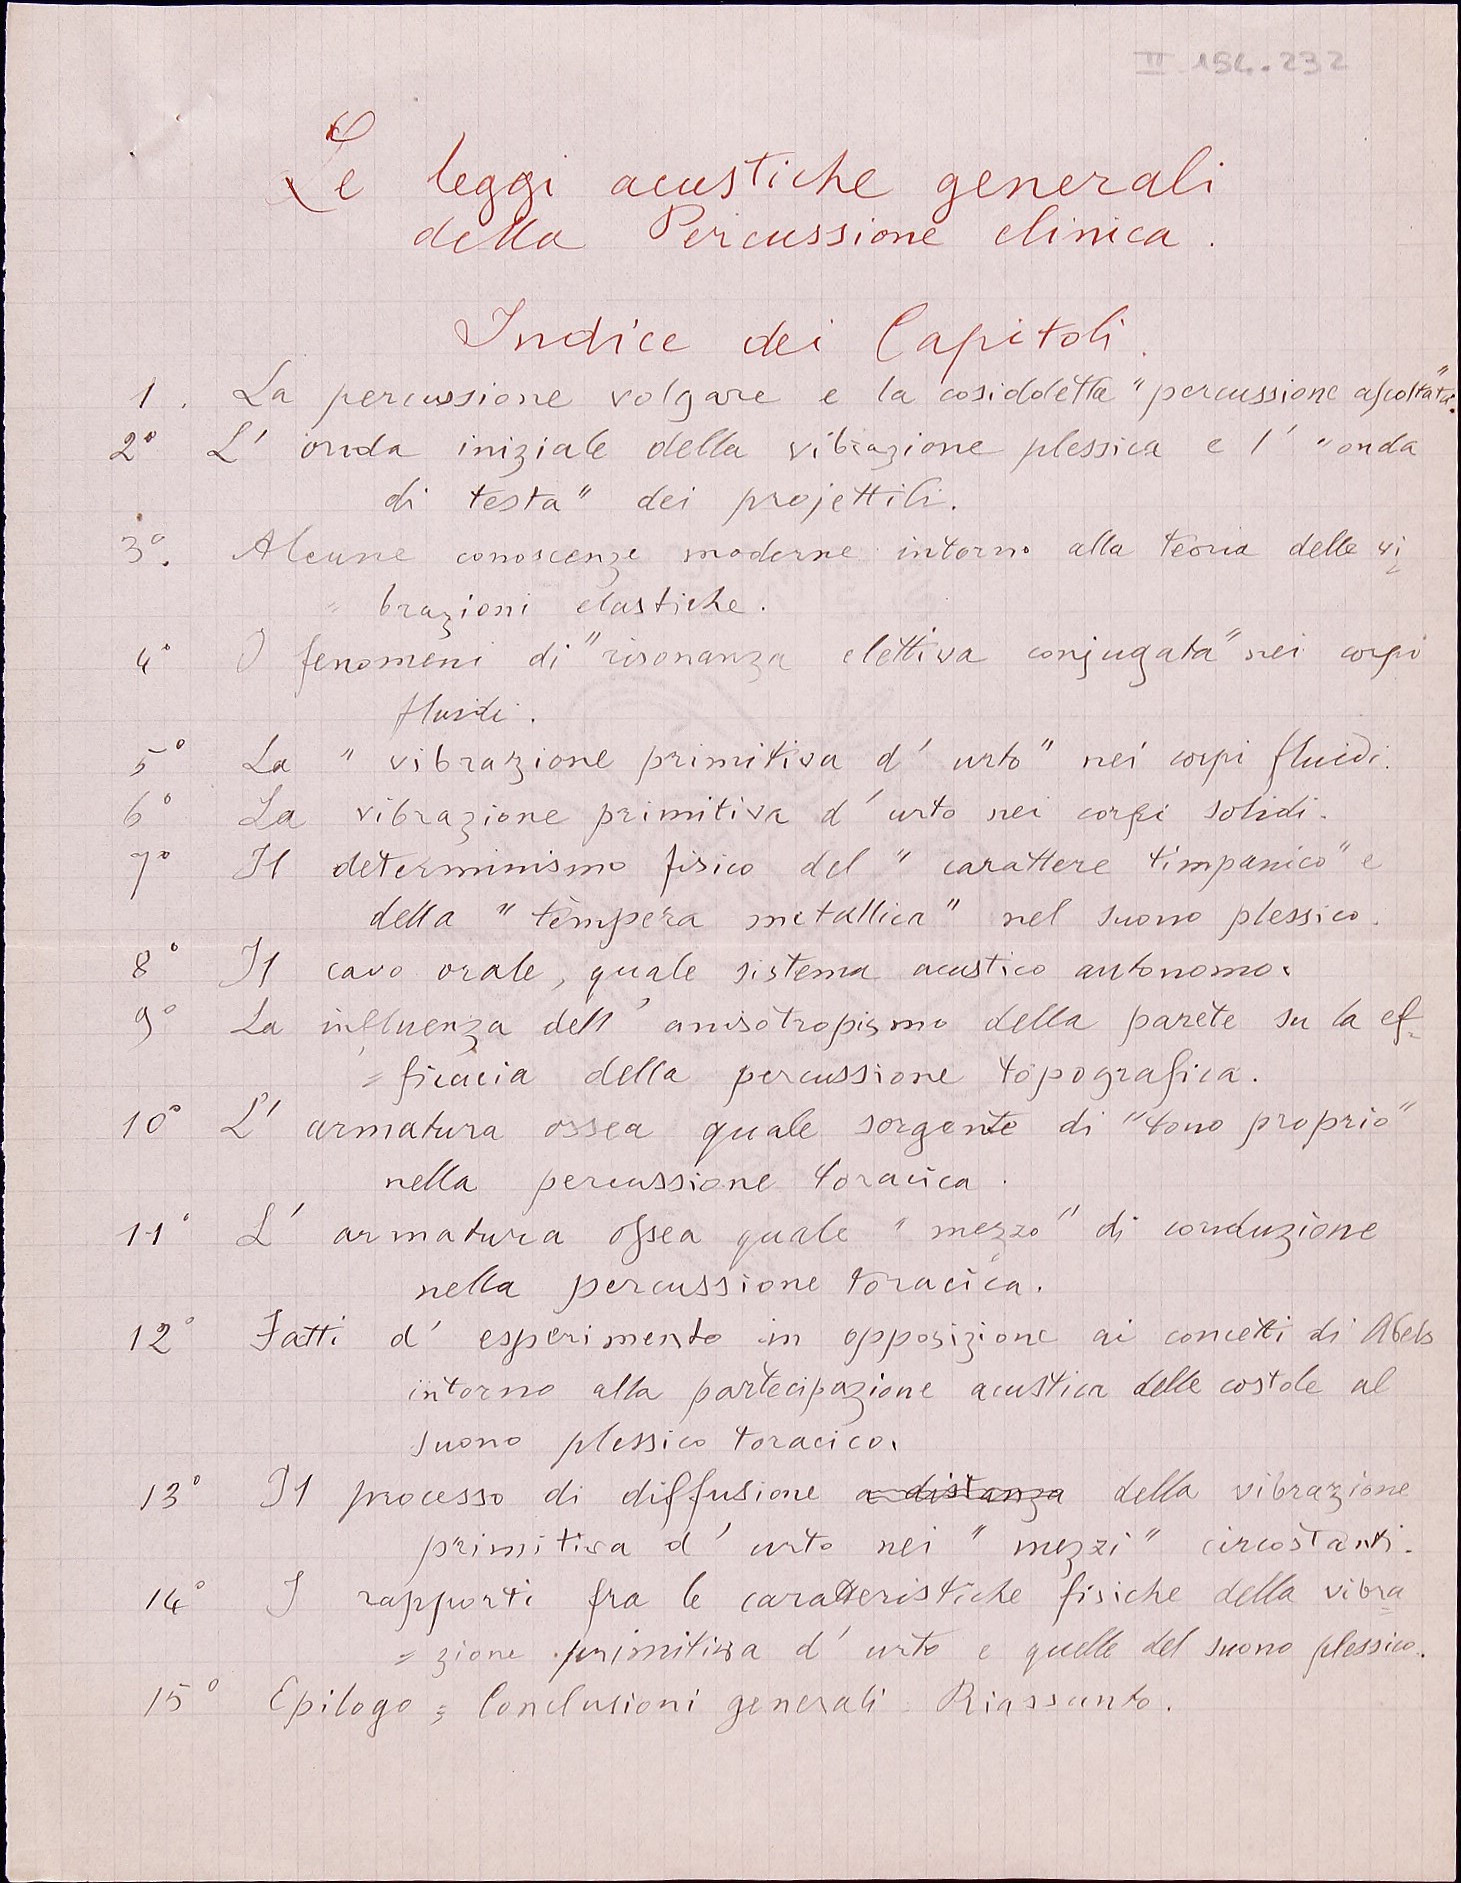 II 154.232
Le leggi acustiche generali
della Percussione clinica.
Indice dei Capitoli.
1. La percussione volgare e la cosiddetta "percussione ascoltata".
2° L' onda iniziale della vibrazione plessica e l' "onda
di testa" dei projettili.
3°. Alcune conoscenze moderne intorno alla teoria delle vi
= brazioni elastiche.
4° I fenomeni di "risonanza elettiva conjugata" nei corpi
fluidi.
5° La "vibrazione primitiva d' urto" nei corpi fluidi.
6° La vibrazione primitiva d' urto nei corpi solidi.
7° Il determinismo fisico del "carattere timpanico" e
della "tèmpera metallica" nel suono plessico.
8° Il cavo orale, quale sistema acustico autonomo.
9° La influenza dell' anisotropismo della parete su la ef=
= ficacia della percussione topografica.
10° L' armatura ossea quale sorgente di "tono proprio"
nella percussione toracica.
11° L' armatura ossea quale "mezzo" di conduzione
nella percussione toracica.
12° Fatti d' esperimento in opposizione ai concetti di Abels
intorno alla partecipazione acustica delle costole al
suono plessico toracico.
13° Il processo di diffusione a distanza della vibrazione
primitiva d' urto nei "mezzi" circostanti.
14° I rapporti fra le caratteristiche fisiche della vibra
= zione primitiva d' urto e quelle del suono plessico.
15° Epilogo = Conclusioni generali. Riassunto.